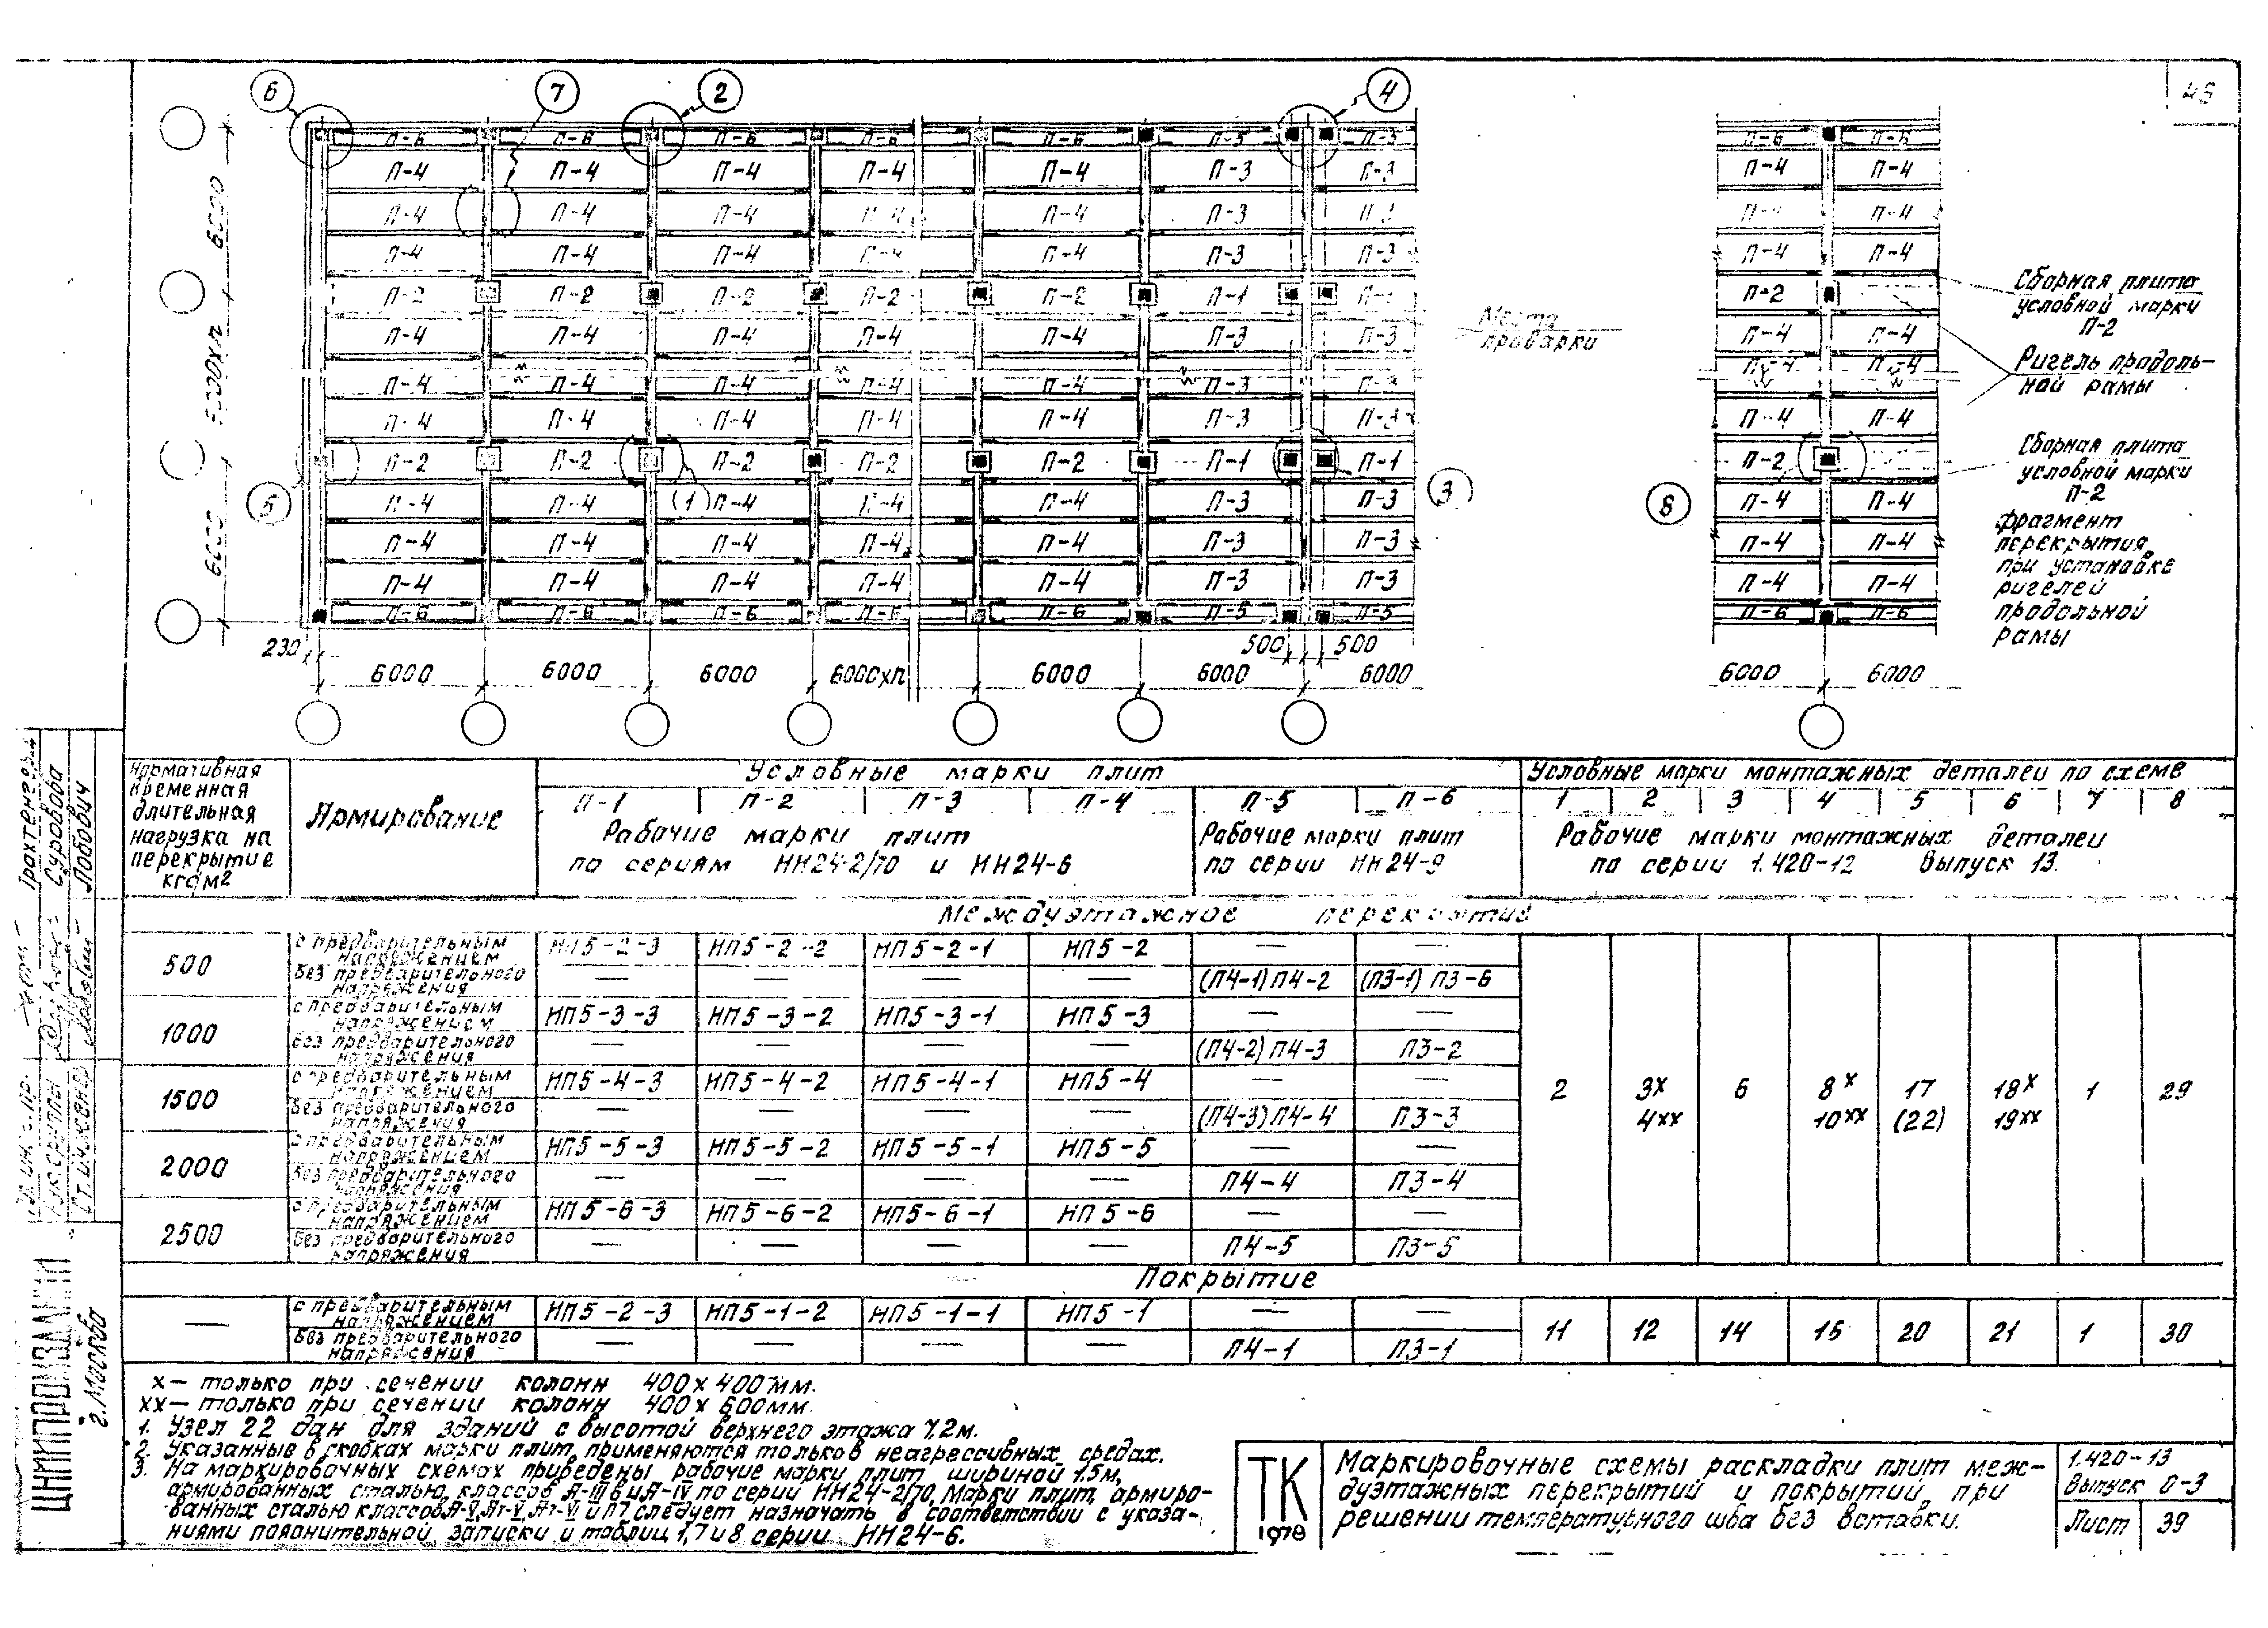 6 7 2 4
П-6 П-6 П-6 П-6 П-6 П-5 П-5 П-6 П-6
П-4 П-4 П-4 П-4 П-4 П-3 П-3 П-4 П-4
П-4 П-4 П-4 П-4 П-3 П-4
П-4 П-4 П-4 П-4 П-3 П-3 П-4 П-4
П-2 П-2 П-2 П-2 П-2 П-1 П-2
П-4 П-4 П-4 П-4 П-4 П-3 П-3 П-4 П-4
П-4 П-4 П-4 П-4 П-4 П-3 П-4 П-4
П-4 П-4 П-4 П-4 П-4 П-3 П-3 П-4 П-4
П-2 П-2 П-2 П-2 П-2 П-1 П-1 П-2
П-4 П-4 П-4 П-4 П-4 П-3 П-3 П-4 П-4
П-4 П-4 П-4 П-4 П-4 П-3 П-3 П-4 П-4
П-4 П-4 П-4 П-4 П-4 П-3 П-3 П-4 П-4
П-6 П-6 П-6 П-6 П-6 П-5 П-5 П-6 П-6
5 1 3 8
6000
6000
Места
приварки
Сборная плита
условной марки
П-2
Ригель продоль-
ной рамы
Сборная плита
условной марки
П-2
фрагмент
перекрытия
при установке
ригелей
продольной
рамы
230 500 500
6000 6000 6000 6000хп 6000 6000 6000 6000 6000
Нормативная
временная
длительная
нагрузка на
перекрытие
кгс/м2
Армирование
Условные марки плит
П-1 П-2 П-3 П-4 П-5 П-6
Рабочие марки плит
по сериям ИИ24-2/70 и ИИ24-6
Рабочие марки плит
по серии ИИ24-9
Условные марки монтажных деталей по схеме
1 2 3 4 5 6 7 8
Рабочие марки монтажных деталей
по серии 1.420-12 Выпуск 13.
Междуэтажное перекрытие
500 с предварительным напряжением НП5-2-3 НП5-2-2 НП5-2-1 НП5-2 — —
без предварительного напряжения — — — — (П4-1) П4-2 (П3-1) П3-6
1000 с предварительным напряжением НП5-3-3 НП5-3-2 НП5-3-1 НП5-3 — —
без предварительного напряжения — — — — (П4-2) П4-3 П3-2
1500 с предварительным напряжением НП5-4-3 НП5-4-2 НП5-4-1 НП5-4 — —
без предварительного напряжения — — — — (П4-3) П4-4 П3-3
2000 с предварительным напряжением НП5-5-3 НП5-5-2 НП5-5-1 НП5-5 — —
без предварительного напряжения — — — — П4-4 П3-4
2500 с предварительным напряжением НП5-6-3 НП5-6-2 НП5-6-1 НП5-6 — —
без предварительного напряжения — — — — П4-5 П3-5
2 3х 6 8х 17 18х 1 29
4хх 10хх (22) 19хх
Покрытие
— с предварительным напряжением НП5-2-3 НП5-1-2 НП5-1-1 НП5-1 — —
без предварительного напряжения — — — — П4-1 П3-1
11 12 14 15 20 21 1 30
х— только при сечении колонн 400х400мм.
хх— только при сечении колонн 400х600мм.
1. Узел 22 дан для зданий с высотой верхнего этажа 7.2м.
2. Указанные в скобках марки плит, применяются только в неагрессивных средах.
3. На маркировочных схемах приведены рабочие марки плит шириной 1.5м,
армированных сталью, классов А-IIIв и А-IV по серии ИИ24-2/70, Марки плит, армиро-
ванных сталью классов А-V, Ат-V, Ат-VI и П7, следует назначать в соответствии с указа-
ниями пояснительной записки и таблиц 1,7 и 8 серии ИИ24-6.
ТК
1978
Маркировочные схемы раскладки плит меж-
дуэтажных перекрытий и покрытий при
решении температурного шва без вставки.
1.420-13
Выпуск 0-3
Лист 39
Трахтенгерц
Суровова
Лобович
Ст. инженер
ЦНИИПРОМЗДАНИЙ
г. Москва